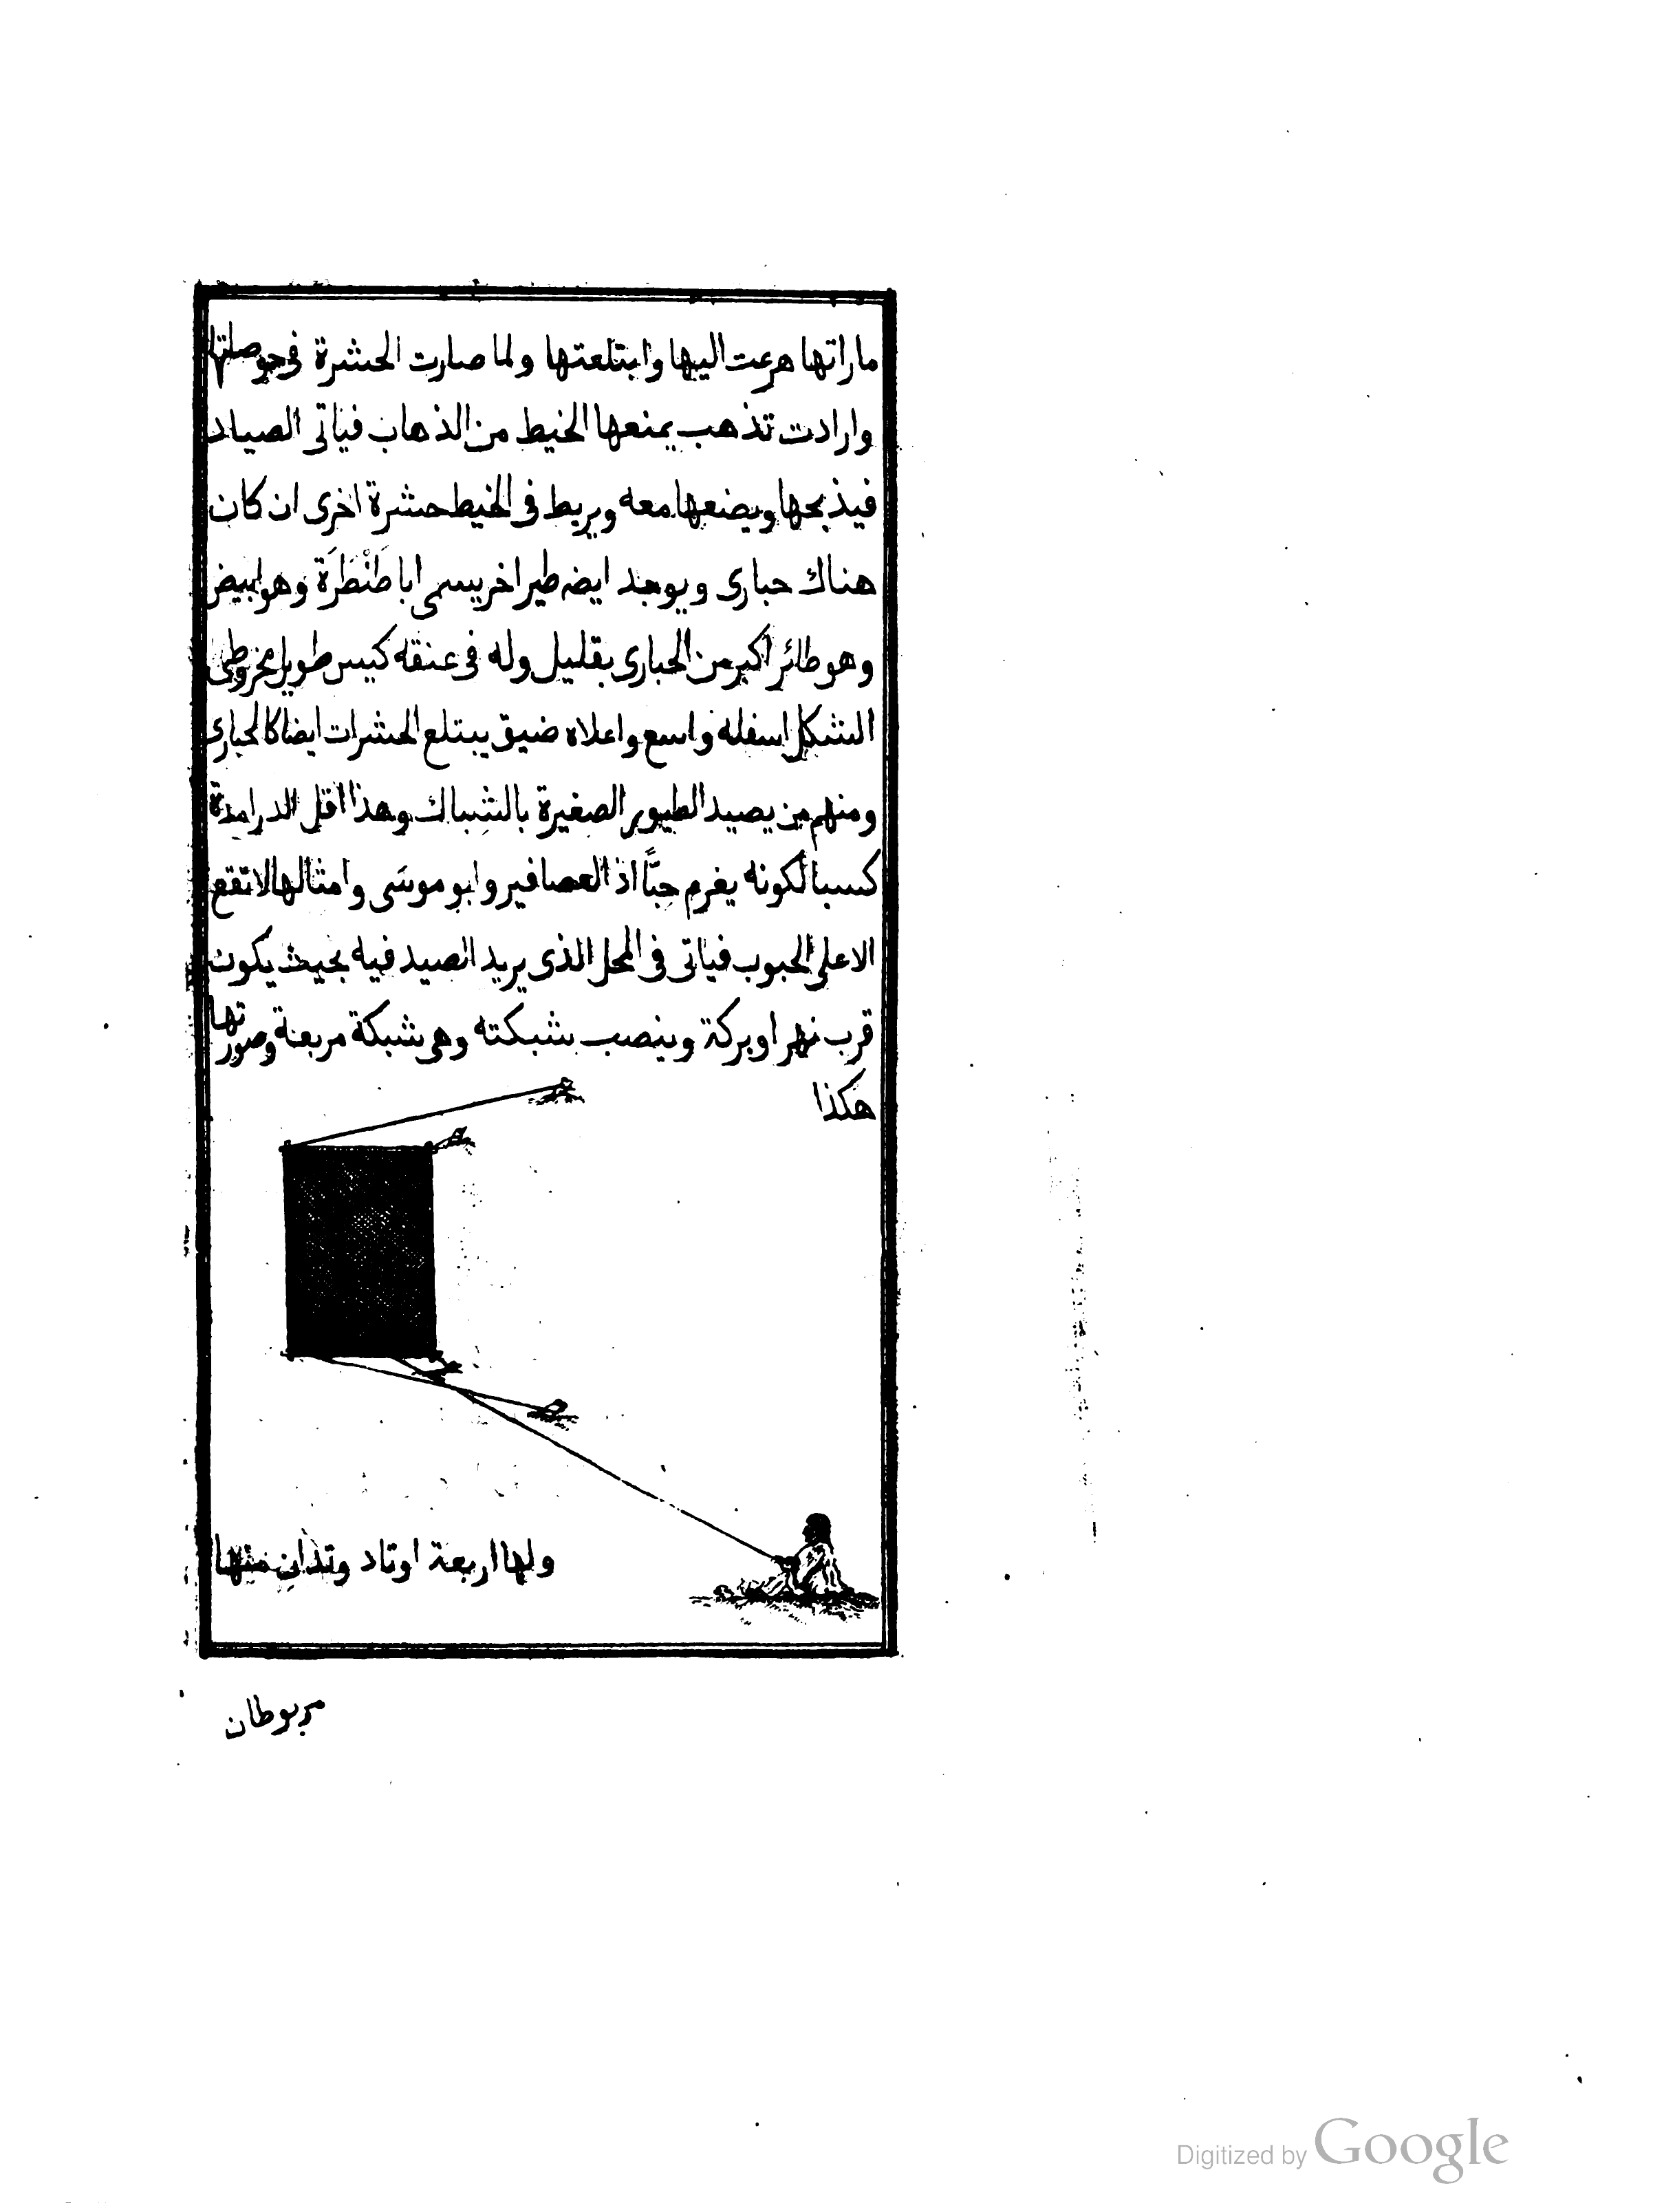 ماراتها هرعت اليها وابتلعتها ولما صارت الحشرة فى حوصلتها
وارادت تذهب يمنعها الخيط من الذهاب فياتى الصياد
فيذبحها ويضعها معه ويربط فى الخيط حشرة اخرى ان كان
هناك حبارى ويوجد ايضه طير اخر يسمى ابا طَنْطَرَة وهو ابيض
وهو طائر اكبر من الحبارى بقليل وله فى عنقه كيس طويل مخروطى
الشكل اسفله واسع واعلاه ضيق يبتلع الحشرات ايضا كالحبارى
ومنهم من يصيد الطيور الصغيرة بالشباك وهذا اقل الدرامدة
كسبا لكونه يغرم حبًّا اذ العصافير وابو موسَى وامثالها لا تقع
الا على الحبوب فياتى فى المحل الذى يريد الصيد فيه بحيث يكون
قرب نهر او بركة وينصب شبكته وهى شبكة مربعة وصورتها
هكذا
ولها اربعة اوتاد وتدان منها
مربوطان
Digitized by Google